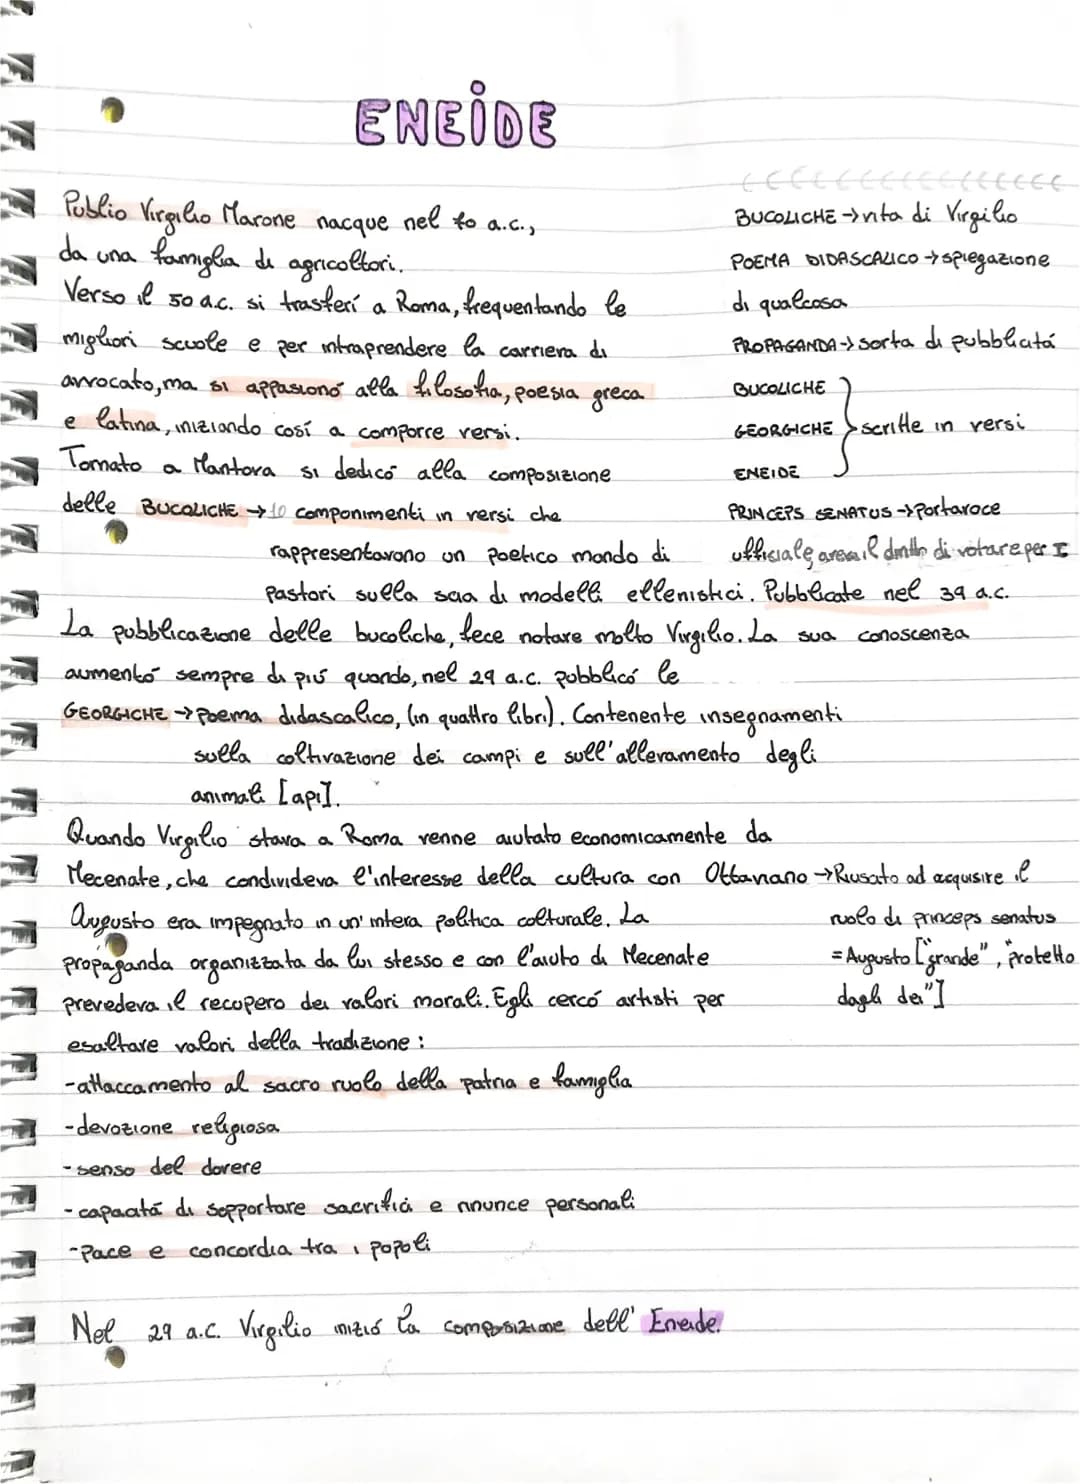 ENEIDE
Publio Virgilio Marone nacque nel 70 a.c.,
da una famiglia di agricoltori.
Verso il 50 a.c. si trasferí a Roma, frequentando le
migliori scuole e per intraprendere la carriera di
avvocato, ma si appasionó alla filosofia, poesia greca
e latina, iniziando cosí a comporre versi.
Tornato a Mantova si dedicó alla composizione
delle BUCOLICHE → 10 componimenti in versi che
rappresentavano un poetico mondo di
pastori sulla scia di modelli ellenistici. Pubblicate nel 39 a.c.
BUCOLICHE → vita di Virgilio
POEMA DIDASCALICO → spiegazione
di qualcosa
PROPAGANDA → sorta di pubblicitá
BUCOLICHE
GEORGICHE } scritte in versi
ENEIDE
PRINCEPS SENATUS → Portavoce
ufficiale, aveva il diritto di votare per I
La pubblicazione delle bucoliche, fece notare molto Virgilio. La sua conoscenza
aumentó sempre di piú quando, nel 29 a.c. pubblicó le
GEORGICHE → Poema didascalico, (in quattro libri). Contenente insegnamenti
sulla coltivazione dei campi e sull'allevamento degli
animali [api].
Quando Virgilio stava a Roma venne aiutato economicamente da
Mecenate, che condivideva l'interesse della cultura con Ottaviano → Riusato ad acquisire il
ruolo di princeps senatus
= Augusto ["grande", "protetto
dagli dei"]
Augusto era impegnato in un' intera politica colturale. La
propaganda organizzata da lui stesso e con l'aiuto di Mecenate
prevedeva il recupero dei valori morali. Egli cercó artisti per
esaltare valori della tradizione:
-attaccamento al sacro ruolo della patria e famiglia
-devozione religiosa
-senso del dovere
-capacitá di sopportare sacrifici e rinunce personali
-Pace e concordia tra i popoli
Nel 29 a.c. Virgilio inizió la composizione dell' Eneide.